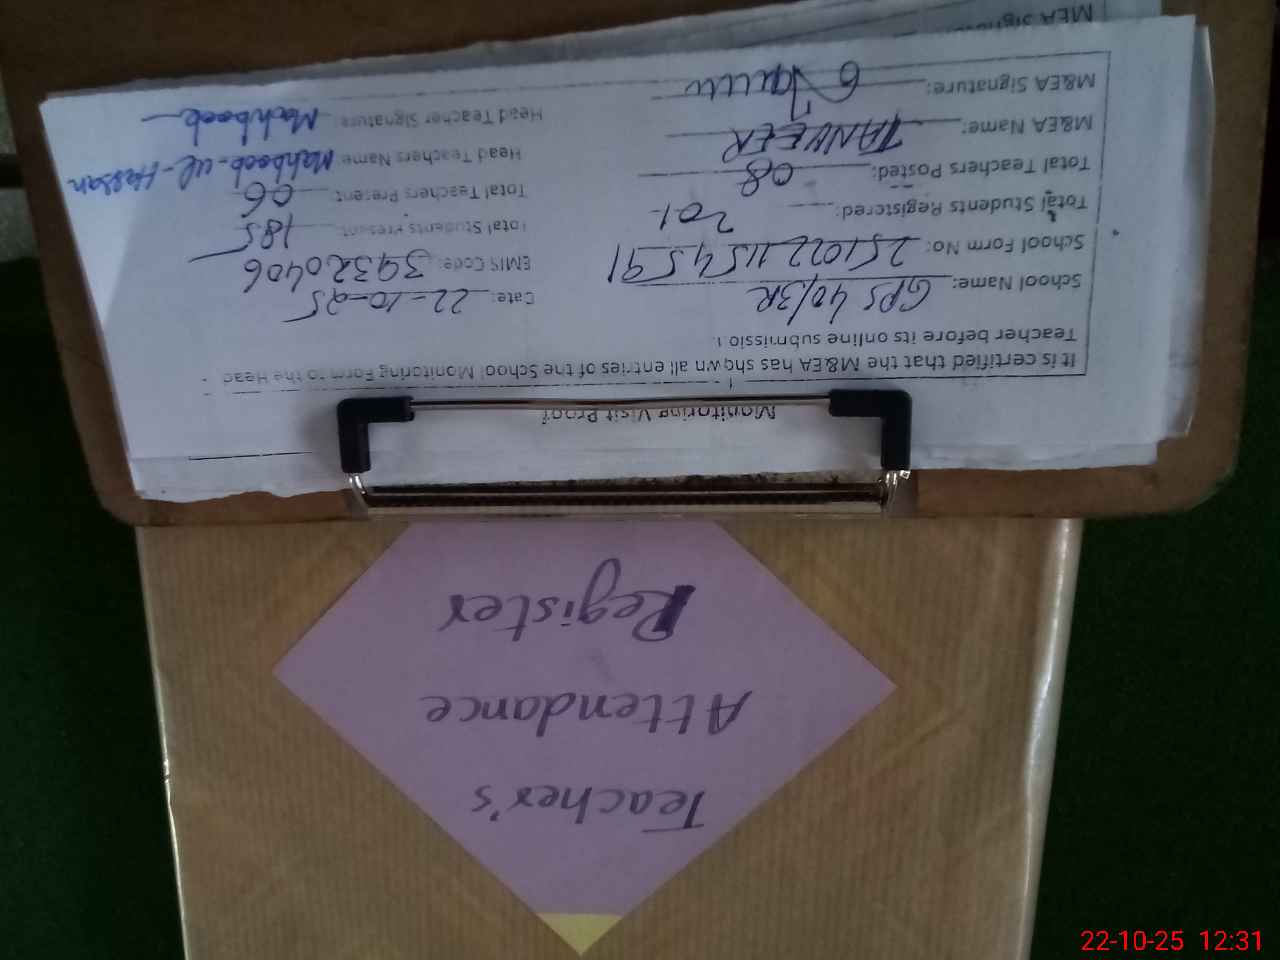 Monitoring Visit Proof
It is certified that the M&EA has shown all entries of the School Monitoring Form to the Head
Teacher before its online submission
School Name: GPS 40/3R Date: 22-10-25
School Form No: 2510221154591 EMIS Code: 39320406
Total Students Registered: 201 Total Students Present: 185
Total Teachers Posted: 08 Total Teachers Present: 06
M&EA Name: TANVEER Head Teachers Name: Mahboob-ul-Hassan
M&EA Signature: Head Teacher Signature: Mahboob
MEA Signature
Teacher's
Attendance
Register
22-10-25 12:31